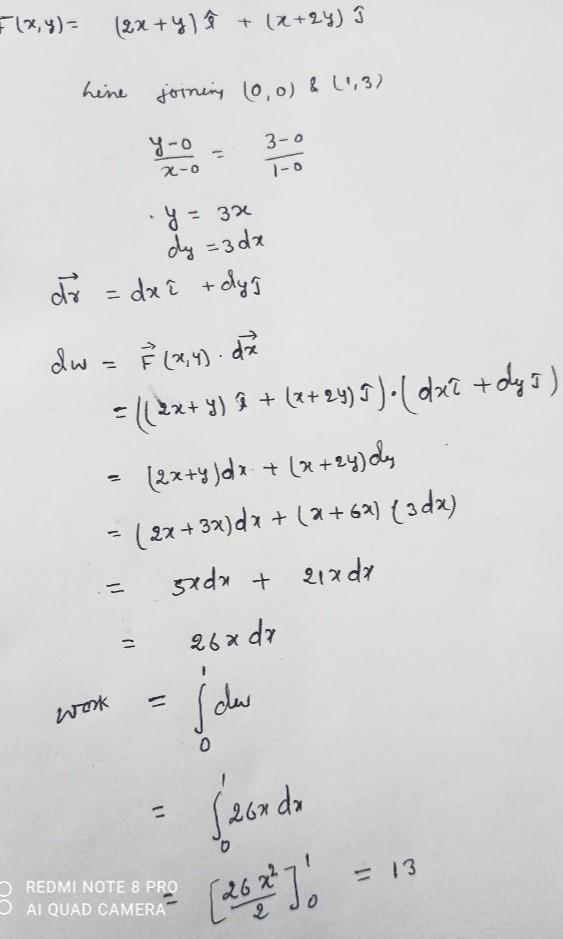 F(x,y) = (2x+y) î + (x+2y) ĵ
Line joining (0,0) & (1,3)
y-0/x-0 = 3-0/1-0
. y = 3x
dy = 3dx
dr⃗ = dx î + dy ĵ
dw = F⃗ (x,y) . dx⃗
= ((2x+y) î + (x+2y) ĵ).(dx î + dy ĵ)
= (2x+y)dx + (x+2y)dy
= (2x+3x)dx + (x+6x) (3dx)
= 5xdx + 21xdx
= 26x dx
work = ∫₀¹ dw
= ∫₀¹ 26x dx
= [26x²/2]₀¹ = 13
REDMI NOTE 8 PRO
AI QUAD CAMERA